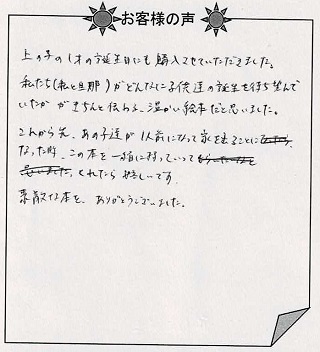 お客様の声
上の子の1才の誕生日にも購入させていただきました。
私たち(私と旦那)がどんなに子供達の誕生を待ち望んで
いたか がきちんと伝わる、温かい絵本だと思いました。
これから先、あの子達が1人前になって家を出ることに
なった時、この本を一緒に持っていって
くれたら嬉しいです。
素敵な本を、ありがとうございました。